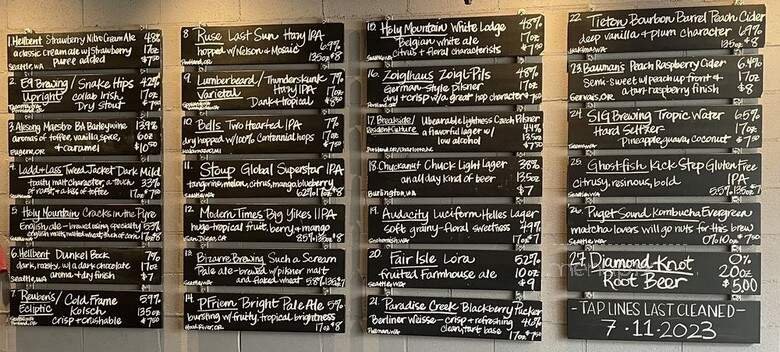 1. Hellbent Strawberry Nitro Cream Ale 4.8%
a classic cream ale w/ Strawberry 17oz
Seattle, WA puree added $7.50
2. E9 Brewing / Snake Hips 4.2%
Upright collab Irish 17oz
Dry Stout $7
3. Alesong Maestro BA Barleywine 13.9%
aromas of toffee, vanilla, spice, 6oz
Eugene, OR + caramel $10.50
4. Ladd + Lass Tweed Jacket Dark Mild
toasty malt character, a touch 3.3%
of roast, + a kiss of toffee 17oz $7.50
5. Holy Mountain Cracks in the Pyre
English ale - brewed using specialty 5.3%
6. Hellbent Dunkel Bock 7%
dark, roasty, w/ a dark chocolate 17oz
Seattle, WA aroma + dry finish $7
7. Reuben's / Cold Frame 5.9%
Ecliptic Kolsch 13.5oz
crisp + crushable $7.50
8. Ruse Last Sun Hazy IPA
hopped w/ Nelson + Mosaic 6.9%
Portland, OR 13.5oz $8
9. Lumberbeard / Thunderskunk 7%
Varietal Hazy IPA 17oz
Dank + tropical
10. Bells Two Hearted IPA 7%
dry hopped w/ 100% Centennial hops 17oz
11. Stoup Global Superstar IPA
tangerine, melon, citrus, mango, blueberry
Seattle, WA
12. Modern Times Big Yikes IIPA
huge tropical fruit, berry + mango
San Diego, CA 8.5% 13.5oz $8
13. Bizarre Brewing Such a Scream
Pale ale - brewed w/ pilsner malt
Seattle, WA and flaked wheat 5.8%
14. Pfriem Bright Pale Ale 5%
bursting w/ fruity, tropical brightness
Hood River, OR 17oz $8
15. Holy Mountain White Lodge 4.8%
Belgian white ale 17oz
citrus + floral characteristics $7.50
16. Zoiglhaus Zoigl-Pils 4.8%
German-style pilsner 17oz
dry + crisp w/ a great hop character $7.50
17. Breakside / Unbearable Lightness Czech Pilsner
Resident Culture a flavorful lager w/ 4.4%
low alcohol 13.5oz
18. Chuckanut Chuck Light Lager 3.8%
an all day kind of beer 13.5oz
Burlington, WA $7
19. Audacity Luciform Helles Lager
soft grainy-floral sweetness 4.9%
17oz $7
20. Fair Isle Lora 5.2%
fruited Farmhouse ale 10oz
Seattle, WA $9
21. Paradise Creek Blackberry Pucker
Berliner Weisse - crisp + refreshing
Pullman, WA clean, tart base 17oz
22. Tieton Bourbon Barrel Peach Cider
deep vanilla + plum character 6.9%
Yakima, WA 13.5oz $8
23. Bauman's Peach Raspberry Cider 6.4%
Semi-sweet w/ peach up front + 17oz
Gervais, OR a tart raspberry finish $8
24. SIG Brewing Tropic Water 6.5%
Hard Seltzer - 17oz
Pineapple, guava, coconut $7.50
25. Ghostfish Kick Step Gluten Free
citrusy, resinous, bold IPA
Seattle, WA 5.5% 13.5oz
26. Puget Sound Kombucha Evergreen
matcha lovers will go nuts for this brew
0% 10oz
27. Diamond Knot 0%
Root Beer 20oz
$5.00
-TAP LINES LAST CLEANED-
7·11·2023